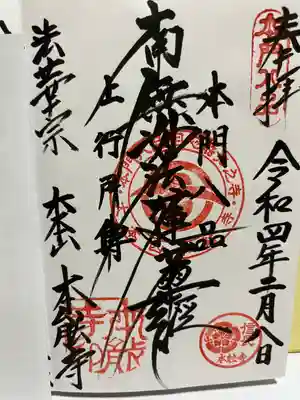 奉拝
令和四年二月八日
本門八品
南無妙法蓮華経
上行所傳
法華宗 大本山 本能寺